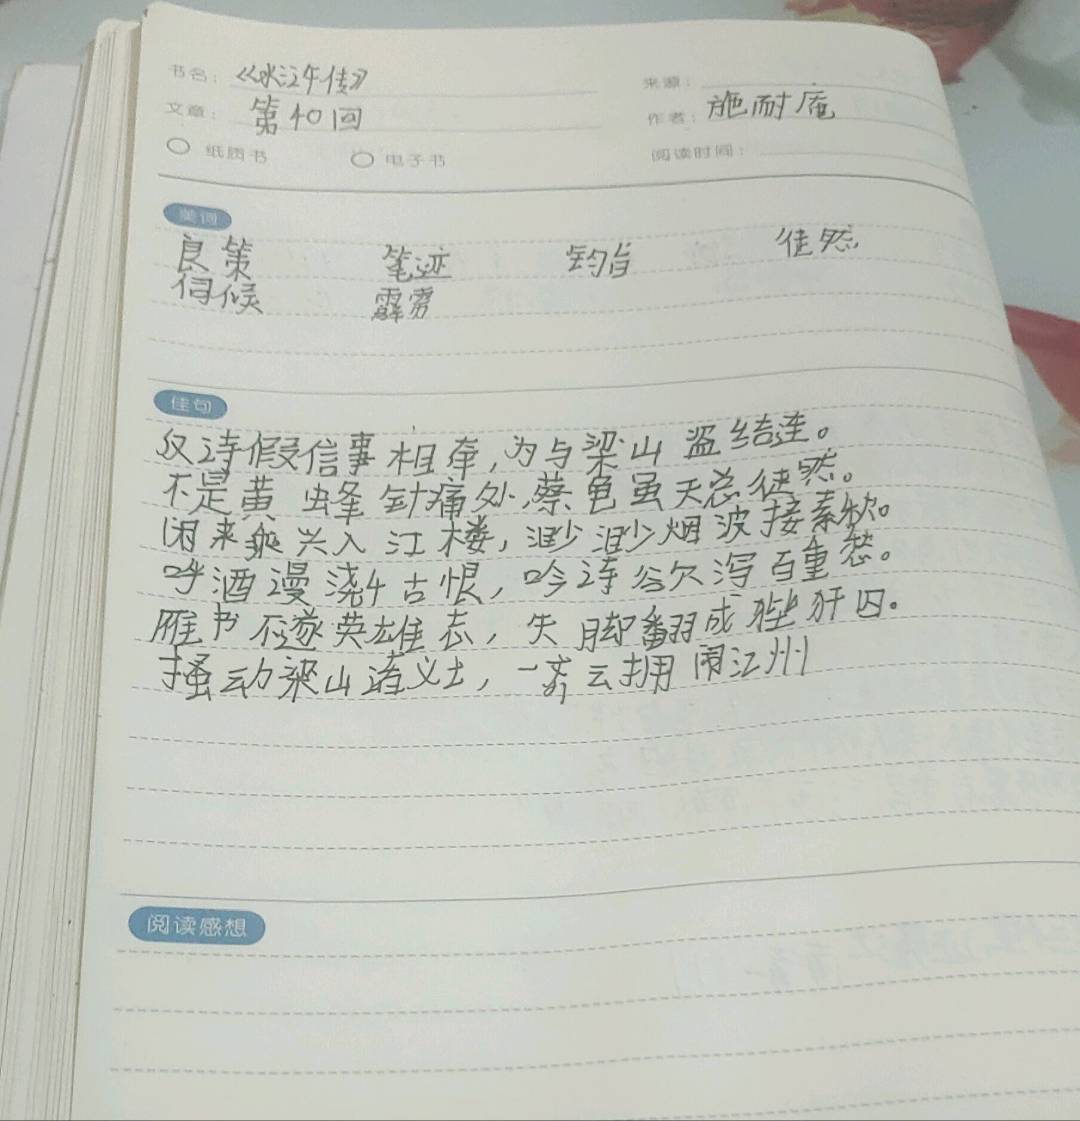 书名：《水浒传》
来源：
文章：第40回
作者：施耐庵
纸质书 电子书
阅读时间：
美词
良策 笔迹 钧旨 徒然
伺候 霹雳
佳句
反诗假信事相牵，为与梁山盗结连。
不是黄蜂针痛处，蔡龟虽大总徒然。
闲来乘兴入江楼，渺渺烟波接素秋。
呼酒漫浇千古恨，吟诗欲泻百重愁。
雁书不遂英雄志，失脚翻成狴犴囚。
搔动梁山诸义士，一齐云拥闹江州
阅读感想